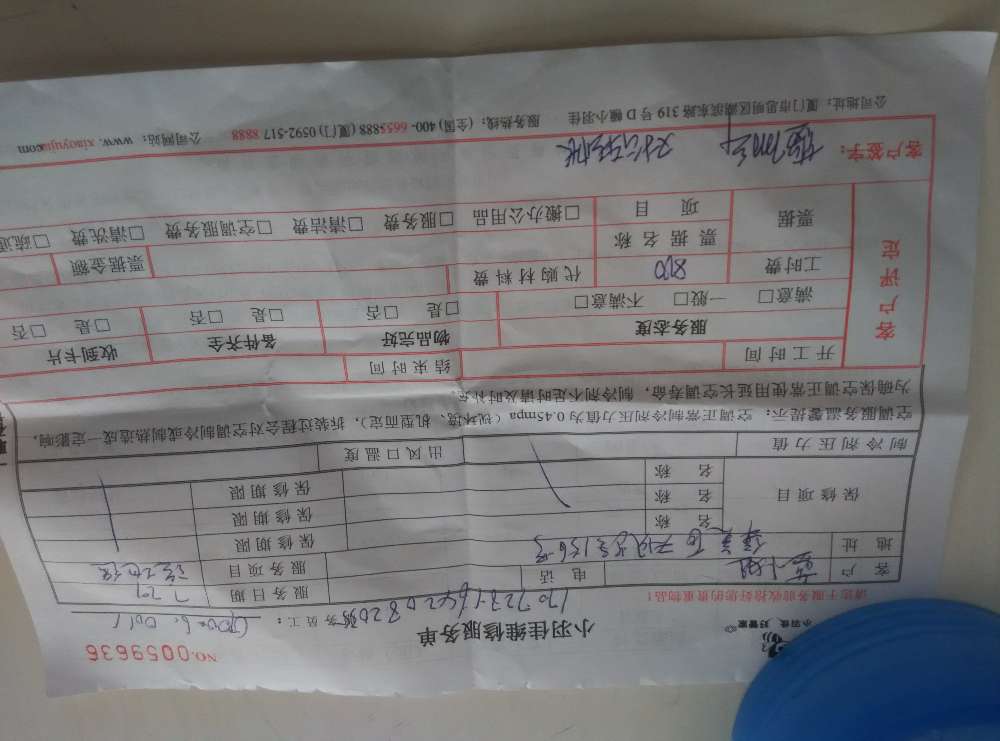 NO.0059636
小羽佳 好管家
小羽佳维修服务单
服务员工:
请您于服务前收拾好您的贵重物品!
客户 电话 服务日期 7.29
地址 服务项目
保修项目 名称 保修期限
名称 保修期限
名称 保修期限
制冷剂压力值 出风口温度
空调服务温馨提示:空调正常制冷剂压力值为0.45mpa(视环境、机型而定),拆装过程会对空调制冷或制热造成一定影响,
为确保空调正常使用延长空调寿命,制冷剂不足时请及时补充。
客户评定
开工时间 结束时间
服务态度 物品完好 备件齐全 收到卡片
满意□ 一般□ 不满意□ □是 □否 □是 □否 □是 □否
工时费 800 代购材料费
票据 票据名称 票据金额
项目 □搬办公用品 □服务费 □清洁费 □空调服务费 □清洗费
客户签字:
公司地址:厦门市思明区湖滨东路319号D幢小羽佳 服务热线:(全国)400-6655888(厦门)0592-517 8888 公司网站:www.xiaoyujia.com